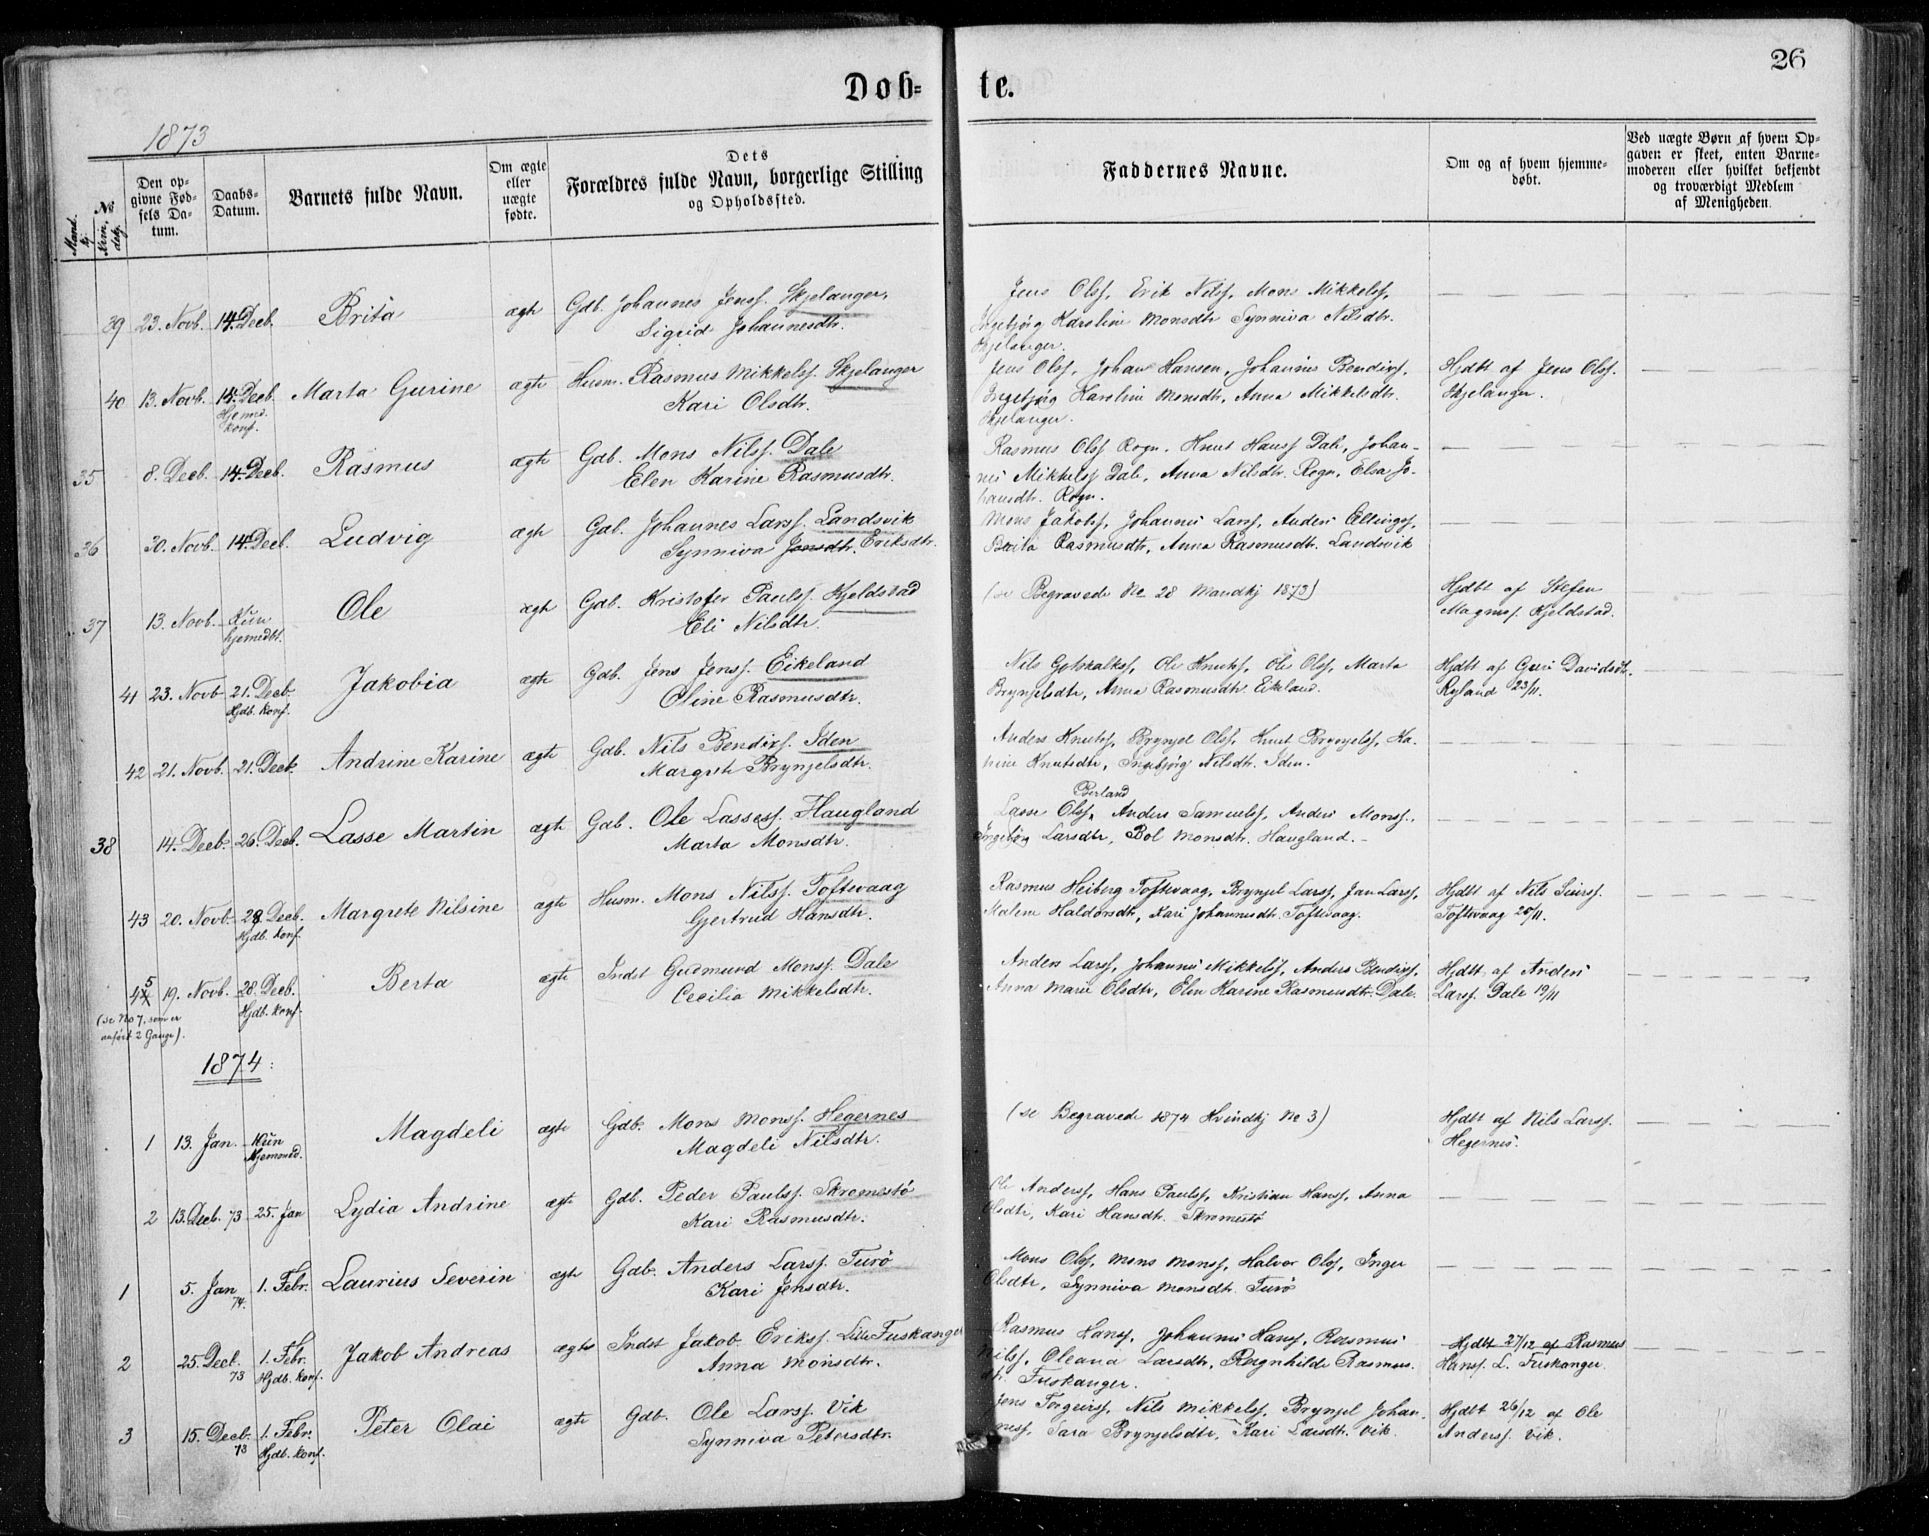 26
Døb- te.
1873
Mandkj. No Kvindekj.
Den opgivne Fødsels Datum.
Daabs-Datum.
Barnets fulde Navn.
Om ægte eller uægte fødte.
Dets Forældres fulde Navn, borgerlige Stilling og Opholdssted.
Faddernes Navne.
Om og af hvem hjemmedøbt.
Ved uægte Børn af hvem Opgaven er skeet, enten Barnemoderen eller hvilket bekjendt og troværdigt Medlem af Menigheden.
39 23. Novb. 14. Decb. Brita ægte Gdb. Johannes Jenss. Skjelanger,
Sigrid Johannesdtr.
Jens Olss, Erik Nilss, Mons Mikkelss,
Ingebjørg Karoline Monsdtr Synniva Nilsdtr.
Skjelanger.
40 13. Novb. 14. Decb. Hjemd. konf. Marta Gurine ægte Husm. Rasmus Mikkelss. Skjelanger
Kari Olsdtr.
Jens Olss, Johan Hansen, Johannes Bendixs,
Ingebjørg Karoline Monsdtr, Anna Mikkelsdtr.
Skjelanger.
Hjdbt af Jens Olss.
Skjelanger.
35 8. Decb. 14. Decb. Rasmus ægte Gdb. Mons Nilss. Dale
Elen Karine Rasmusdtr.
Rasmus Olss Rogn. Knut Hanss Dale, Johan-
nes Mikkelss Dale, Anna Nilsdtr. Rogn, Elsa Jo-
hansdtr. Rogn.
36 30. Novb. 14. Decb. Ludvig ægte Gdb. Johannes Larss. Landsvik
Synniva Jonsdtr. Eriksdtr.
Mons Jakobss, Johannes Larss, Anders Ellingss,
Brita Rasmusdtr, Anna Rasmusdtr. Landsvik
37 13. Novb. Kun hjemedbt. Ole ægte Gdb. Kristofer Paulss. Kjeldstad
Eli Nilsdtr.
(se Begravede No 28 Mandkj 1873)
Hjdbt af Stefen
Magnss. Kjeldstad.
41 23. Novb 21. Decb. Hjdb. konf. Jakobia ægte Gdb. Jens Jenss. Eikeland
Oline Rasmusdtr.
Nils Gotskalkss, Ole Knutss, Ole Olss, Marta
Brynjelsdtr, Anna Rasmusdtr. Eikeland.
Hjdbt af Guri Davidsdtr.
Ryland 23/11.
42 21. Novb. 21. Decb. Andrine Karine ægte Gdb. Nils Bendixs. Iden
Margrete Brynjelsdtr.
Anders Knutss, Brynjel Olss, Knut Brynjelss, Ka-
rine Knutsdtr, Ingebjørg Nilsdtr. Iden.
38 14. Decb. 26. Decb. Lasse Martin ægte Gdb. Ole Lasses. Haugland
Marta Monsdtr.
Berland
Lasse Olss, Anders Samuelss, Anders Monss,
Ingebjørg Larsdtr, Bol Monsdtr. Haugland.
43 20. Novb. 28. Decb. Hjdb. konf. Margrete Nilsine ægte Husm. Mons Nilss. Toftevaag
Gjertrud Hansdtr.
Rasmus Heiberg Toftevaag, Brynjel Larss, Jan Larss,
Malene Haldorsdtr, Kari Johannesdtr. Toftevaag.
Hjdbt af Nils Siurss.
Toftevaag 20/11.
45 19. Novb. 28. Decb. Hjdb. konf. Berta ægte Indst Gudmund Monss. Dale
Cecilia Mikkelsdtr.
(se No 7, som er
anført 2 Gange).
Anders Larss, Johannes Mikkelss, Anders Bendixs,
Anna Marie Olsdtr, Elen Karine Rasmusdtr. Dale.
Hjdbt af Anders
Larss. Dale 19/11
1874.
1 13. Jan. Kun Hjemmed. Magdeli ægte Gdb. Mons Monss. Hegernes
Magdeli Nilsdtr.
(se Begravede 1874 Kvindkj No 3)
Hjdbt af Nils Larss.
Hegernes.
2 13. Decb. 73 25. Jan Lydia Andrine ægte Gdb. Peder Paulss. Skromestø
Kari Rasmusdtr.
Ole Anderss, Hans Paulss, Kristian Hanss, Anna
Olsdtr, Kari Hansdtr. Skromestø
1 5. Jan 74. 1. Febr. Laurius Severin ægte Gdb. Anders Larss. Turø
Kari Jensdtr.
Mons Olss, Mons Monss, Halvor Olss, Inger
Olsdtr, Synniva Monsdtr. Turø
2 25. Decb. 73 1. Febr. Hjdb. konf. Jakob Andreas ægte Indst Jakob Erikss. Lille Fuskanger
Anna Monsdtr.
Rasmus Hanss, Johannes Hanss, Rasmus
Nilss, Oleana Larsdtr, Ragnhilde Rasmus-
dtr. Fuskanger.
Hjdbt 27/12 af Rasmus
Hanss. L. Fuskanger.
3 15. Decb. 73 1. Febr. Hjdb. konf. Peter Olai ægte Gdb. Ole Larss. Vik
Synniva Petersdtr.
Jens Torgeirss, Nils Mikkelss, Brynjel Johan-
ness, Sara Brynjelsdtr, Kari Larsdtr. Vik.
Hjdbt 26/12 af Ole
Anderss. Vik.